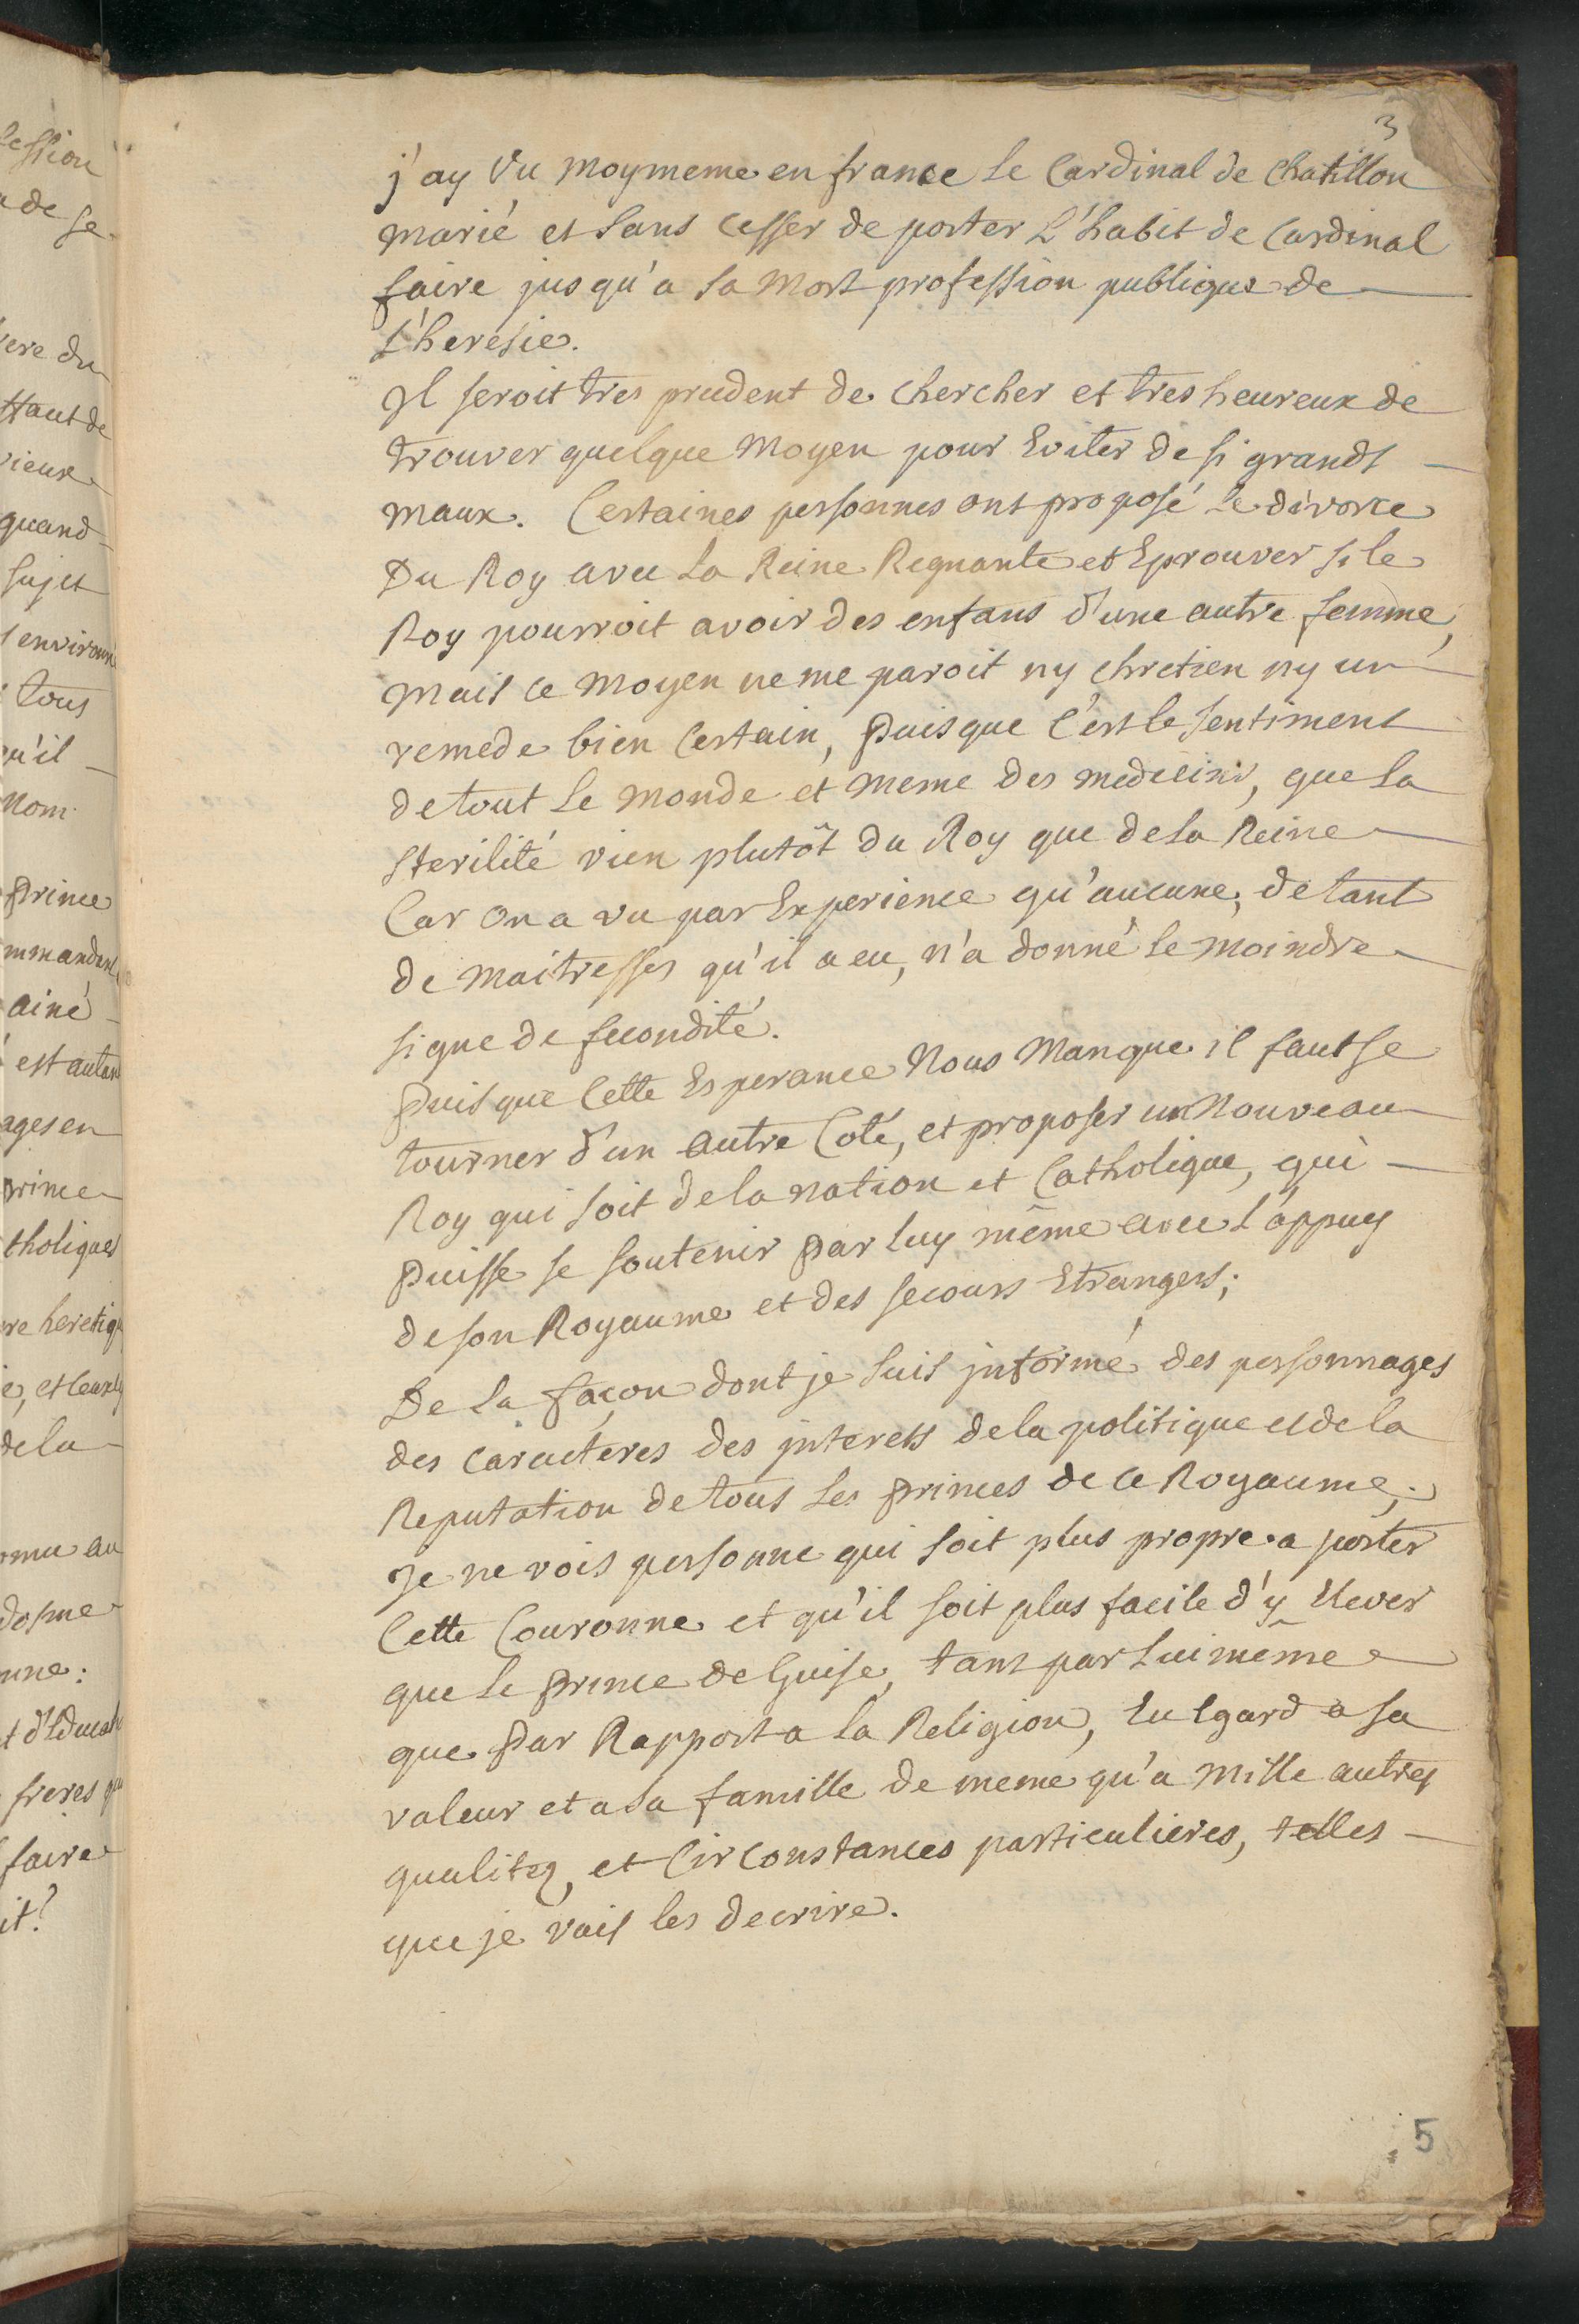 3
j'ay Vu moymeme en france le Cardinal de Chatillon
marié et sans cesser de porter L'habit de Cardinal
faire jusqu'a sa mort profession publique de
L'heresie.
Il seroit tres prudent de chercher et tres heureux de
trouver quelque moyen pour Eviter de si grands
maux. Certaines personnes ont proposé le divorce
Du Roy avec la Reine Regnante et Eprouver si le
Roy pourroit avoir des enfans d'une autre femme,
mais ce moyen ne me paroit ny chretien ny un
remede bien Certain, Puisque c'est le sentiment
de tout le monde et meme des medecins, que la
sterilité vien plutôt du Roy que de la Reine
Car on a vu par Experience qu'aucune, de tant
de maitresses qu'il a eu, n'a donné le moindre
signe de fecondité.
Puisque Cette Esperance Nous Manque il faut se
tourner d'un autre Coté, et proposer un Nouveau
Roy qui soit de la nation et Catholique, qui
Puisse se soutenir Par luy même avec L'appuy
de son Royaume et des secours Etrangers;
De la façon dont je suis informé des personnages
des caracteres des interets de la politique et de la
Reputation de tous les Princes de ce Royaume;
Je ne vois personne qui soit plus propre a porter
Cette Couronne et qu'il soit plus facile d'y Elever
que le Prince de Guise, tant par Lui même
que Par Rapport a la Religion, Eu Egard a sa
valeur et a sa famille de meme qu'a mille autres
qualitez, et Circonstances particulieres, telles
que je vais les decrire.
5
ession
de se
ere du
ttant de
vieux
quand
sujet
environné
tous
u'il
nom
Prince
mmandent
ainé
est autant
ages en
prince
tholiques
re heretiq
de la
mu au
unne:
freres
faire
it?